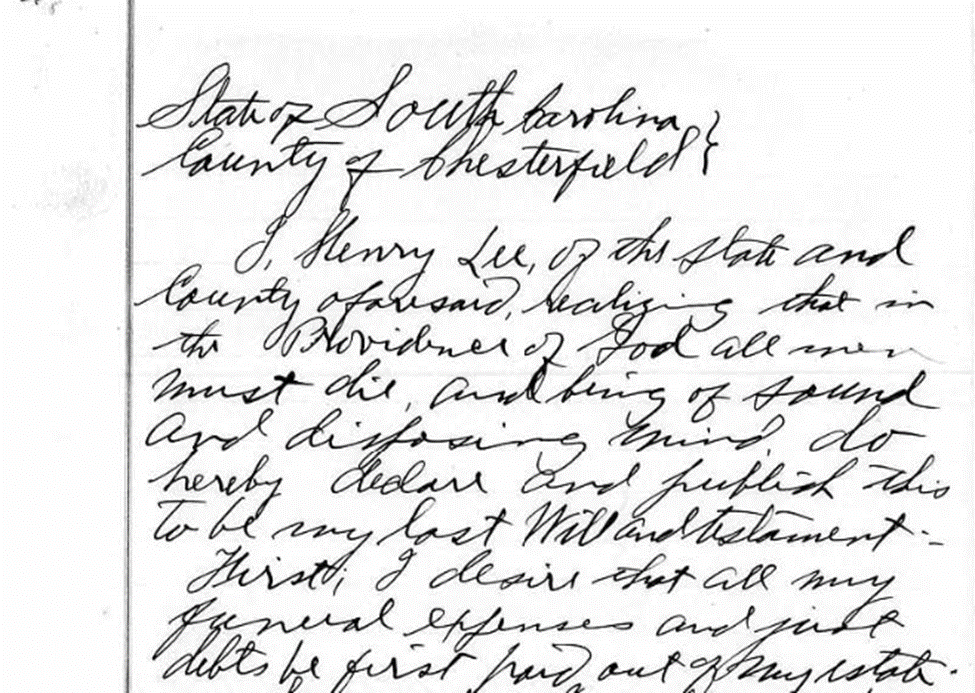 State of South Carolina }
County of Chesterfield }
I, Henry Lee, of the state and
County aforesaid, realizing that in
the Providence of God all men
must die, and being of sound
and disposing mind, do
hereby declare and publish this
to be my last Will and testament:-
First; I desire that all my
funeral expenses and just
debts be first paid out of my estate.